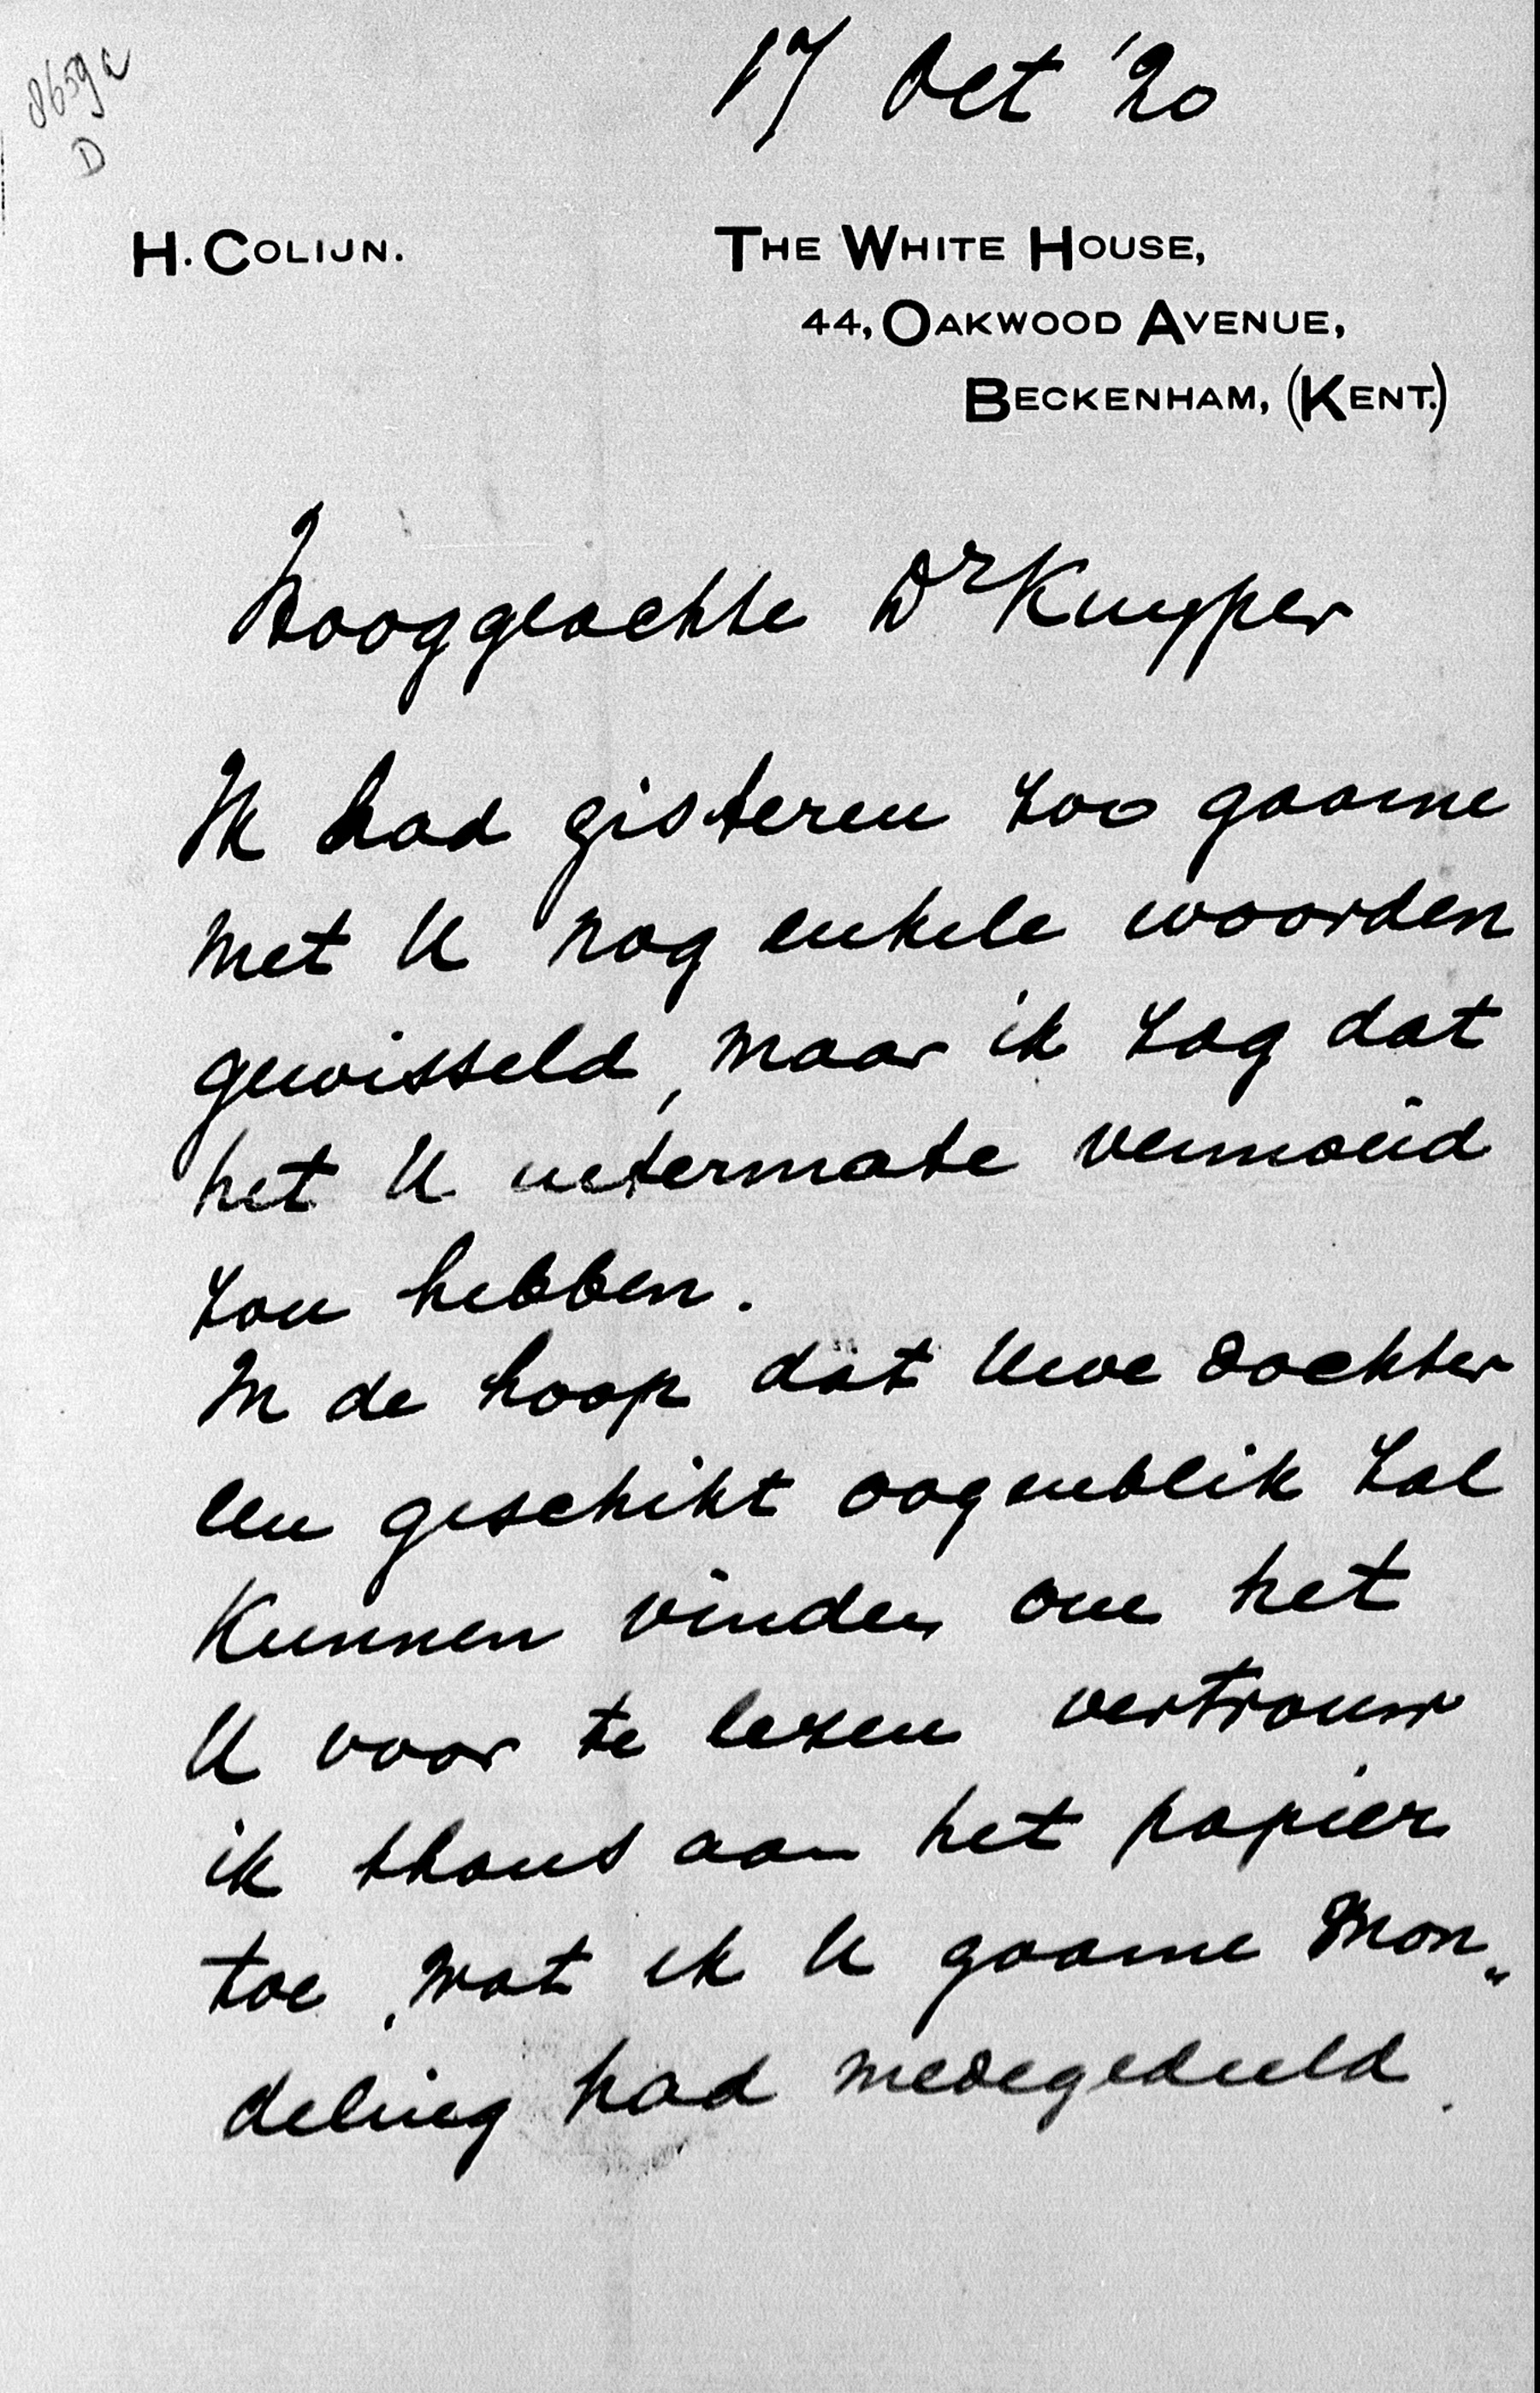 8659a
D
17 Oct '20
H. COLIJN.
THE WHITE HOUSE,
44, OAKWOOD AVENUE,
BECKENHAM, (KENT.)
Hooggeachte Dr Kuyper
Ik had gisteren zoo gaarne
met U nog enkele woorden
gewisseld, maar ik zag dat
het U uitermate vermoeid
zou hebben.
In de hoop dat Uwe dochter
een geschikt oogenblik zal
kunnen vinden om het
U voor te lezen vertrouw
ik thans aan het papier
toe, wat ik U gaarne mon„
deling had medegedeeld.